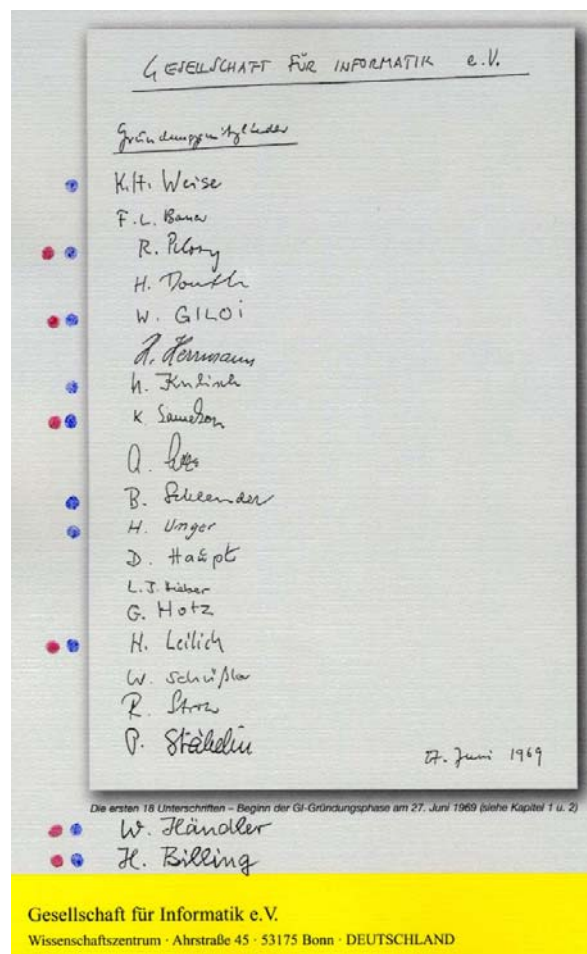 GESELLSCHAFT FÜR INFORMATIK e.V.
Gründungsmitglieder
K.H. Weise
F.L. Bauer
R. Piloty
H. Donth
W. GILOI
H. Herrmann
K. Samelson
B. Schlender
H. Unger
D. Haupt
L.J.
G. Hotz
H. Leilich
W. Schüßler
R.
P. Stähelin
27. Juni 1969
Die ersten 18 Unterschriften – Beginn der GI-Gründungsphase am 27. Juni 1969 (siehe Kapitel 1 u. 2)
W. Händler
H. Billing
Gesellschaft für Informatik e.V.
Wissenschaftszentrum · Ahrstraße 45 · 53175 Bonn · DEUTSCHLAND